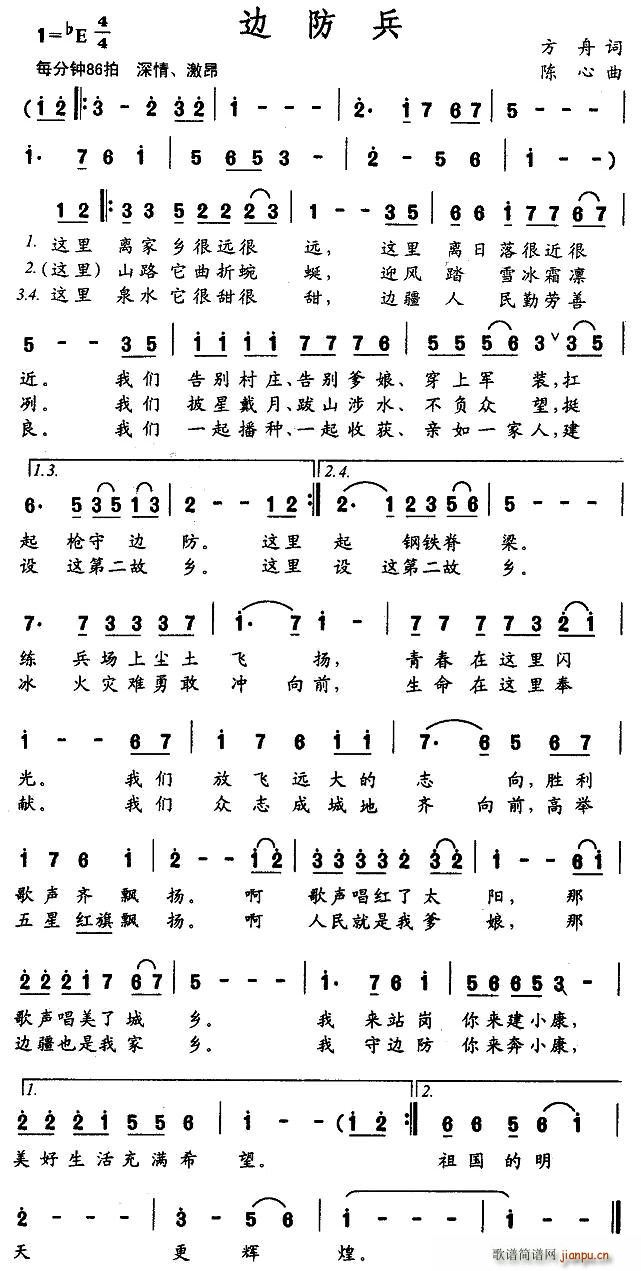 边防兵
1=♭E 4/4
方舟词
每分钟86拍 深情、激昂
陈心曲
(i 2 ‖: 3 - 2 3 2 | i - - - | 2· i 7 6 7 | 5 - - - |
i· 7 6 i | 5 6 5 3 - | 2 - 5 6 | i - - )
1 2 ‖: 3 3 5 2 2 2 2 3 | 1 - - 3 5 | 6 6 i 7 7 6 7 |
1. 这里 离家乡很远很 远, 这里 离日落很近很
2.(这里) 山路它曲折蜿 蜒, 迎风踏 雪冰霜凛
3.4. 这里 泉水它很甜很 甜, 边疆人 民勤劳善
5 - - 3 5 | i i i i 7 7 7 6 | 5 5 5 5 6 3 ∨ 3 5 |
近。 我们 告别村庄、告别爹娘、穿上军 装,扛
冽。 我们 披星戴月、跋山涉水、不负众 望,挺
良。 我们 一起播种、一起收获、亲如一家人,建
1.3.
2.4.
6· 5 3 5 1 3 | 2 - - 1 2 :‖ 2· 1 2 3 5 5 6 | 5 - - - |
起 枪守 边 防。 这里 起 钢铁脊 梁。
设 这第二故 乡。 这里 设 这第二故 乡。
7· 7 3 3 3 3 7 | i· 7 i - | 7 7 7 7 3 2 i |
练 兵场上尘土 飞 扬, 青春在这里闪
冰 火灾难勇敢 冲 向前, 生命在这里奉
i - - 6 7 | i 7 6 i i | 7· 6 5 6 7 |
光。 我们 放飞远大的 志 向,胜利
献。 我们 众志成城地 齐 向前,高举
i 7 6 i | 2 - - i 2 | 3 3 3 3 2 3 2 | i - - 6 i |
歌声齐飘 扬。 啊 歌声唱红了太 阳, 那
五星红旗飘 扬。 啊 人民就是我爹 娘, 那
2 2 2 i 7 6 7 | 5 - - - | i· 7 6 i | 5 6 6 5 3 - |
歌声唱美了城 乡。 我 来站岗 你来建小康,
边疆也是我家 乡。 我 守边防 你来奔小康,
1.
2.
2 2 2 i 5 5 6 | i - - (i 2 :‖ 6 6 5 6 i |
美好生活充满希 望。 祖国的明
2 - - - | 3 - 5 6 | i - - - | i - - 0 ‖
天 更 辉 煌。
歌谱简谱网
jianpu.cn